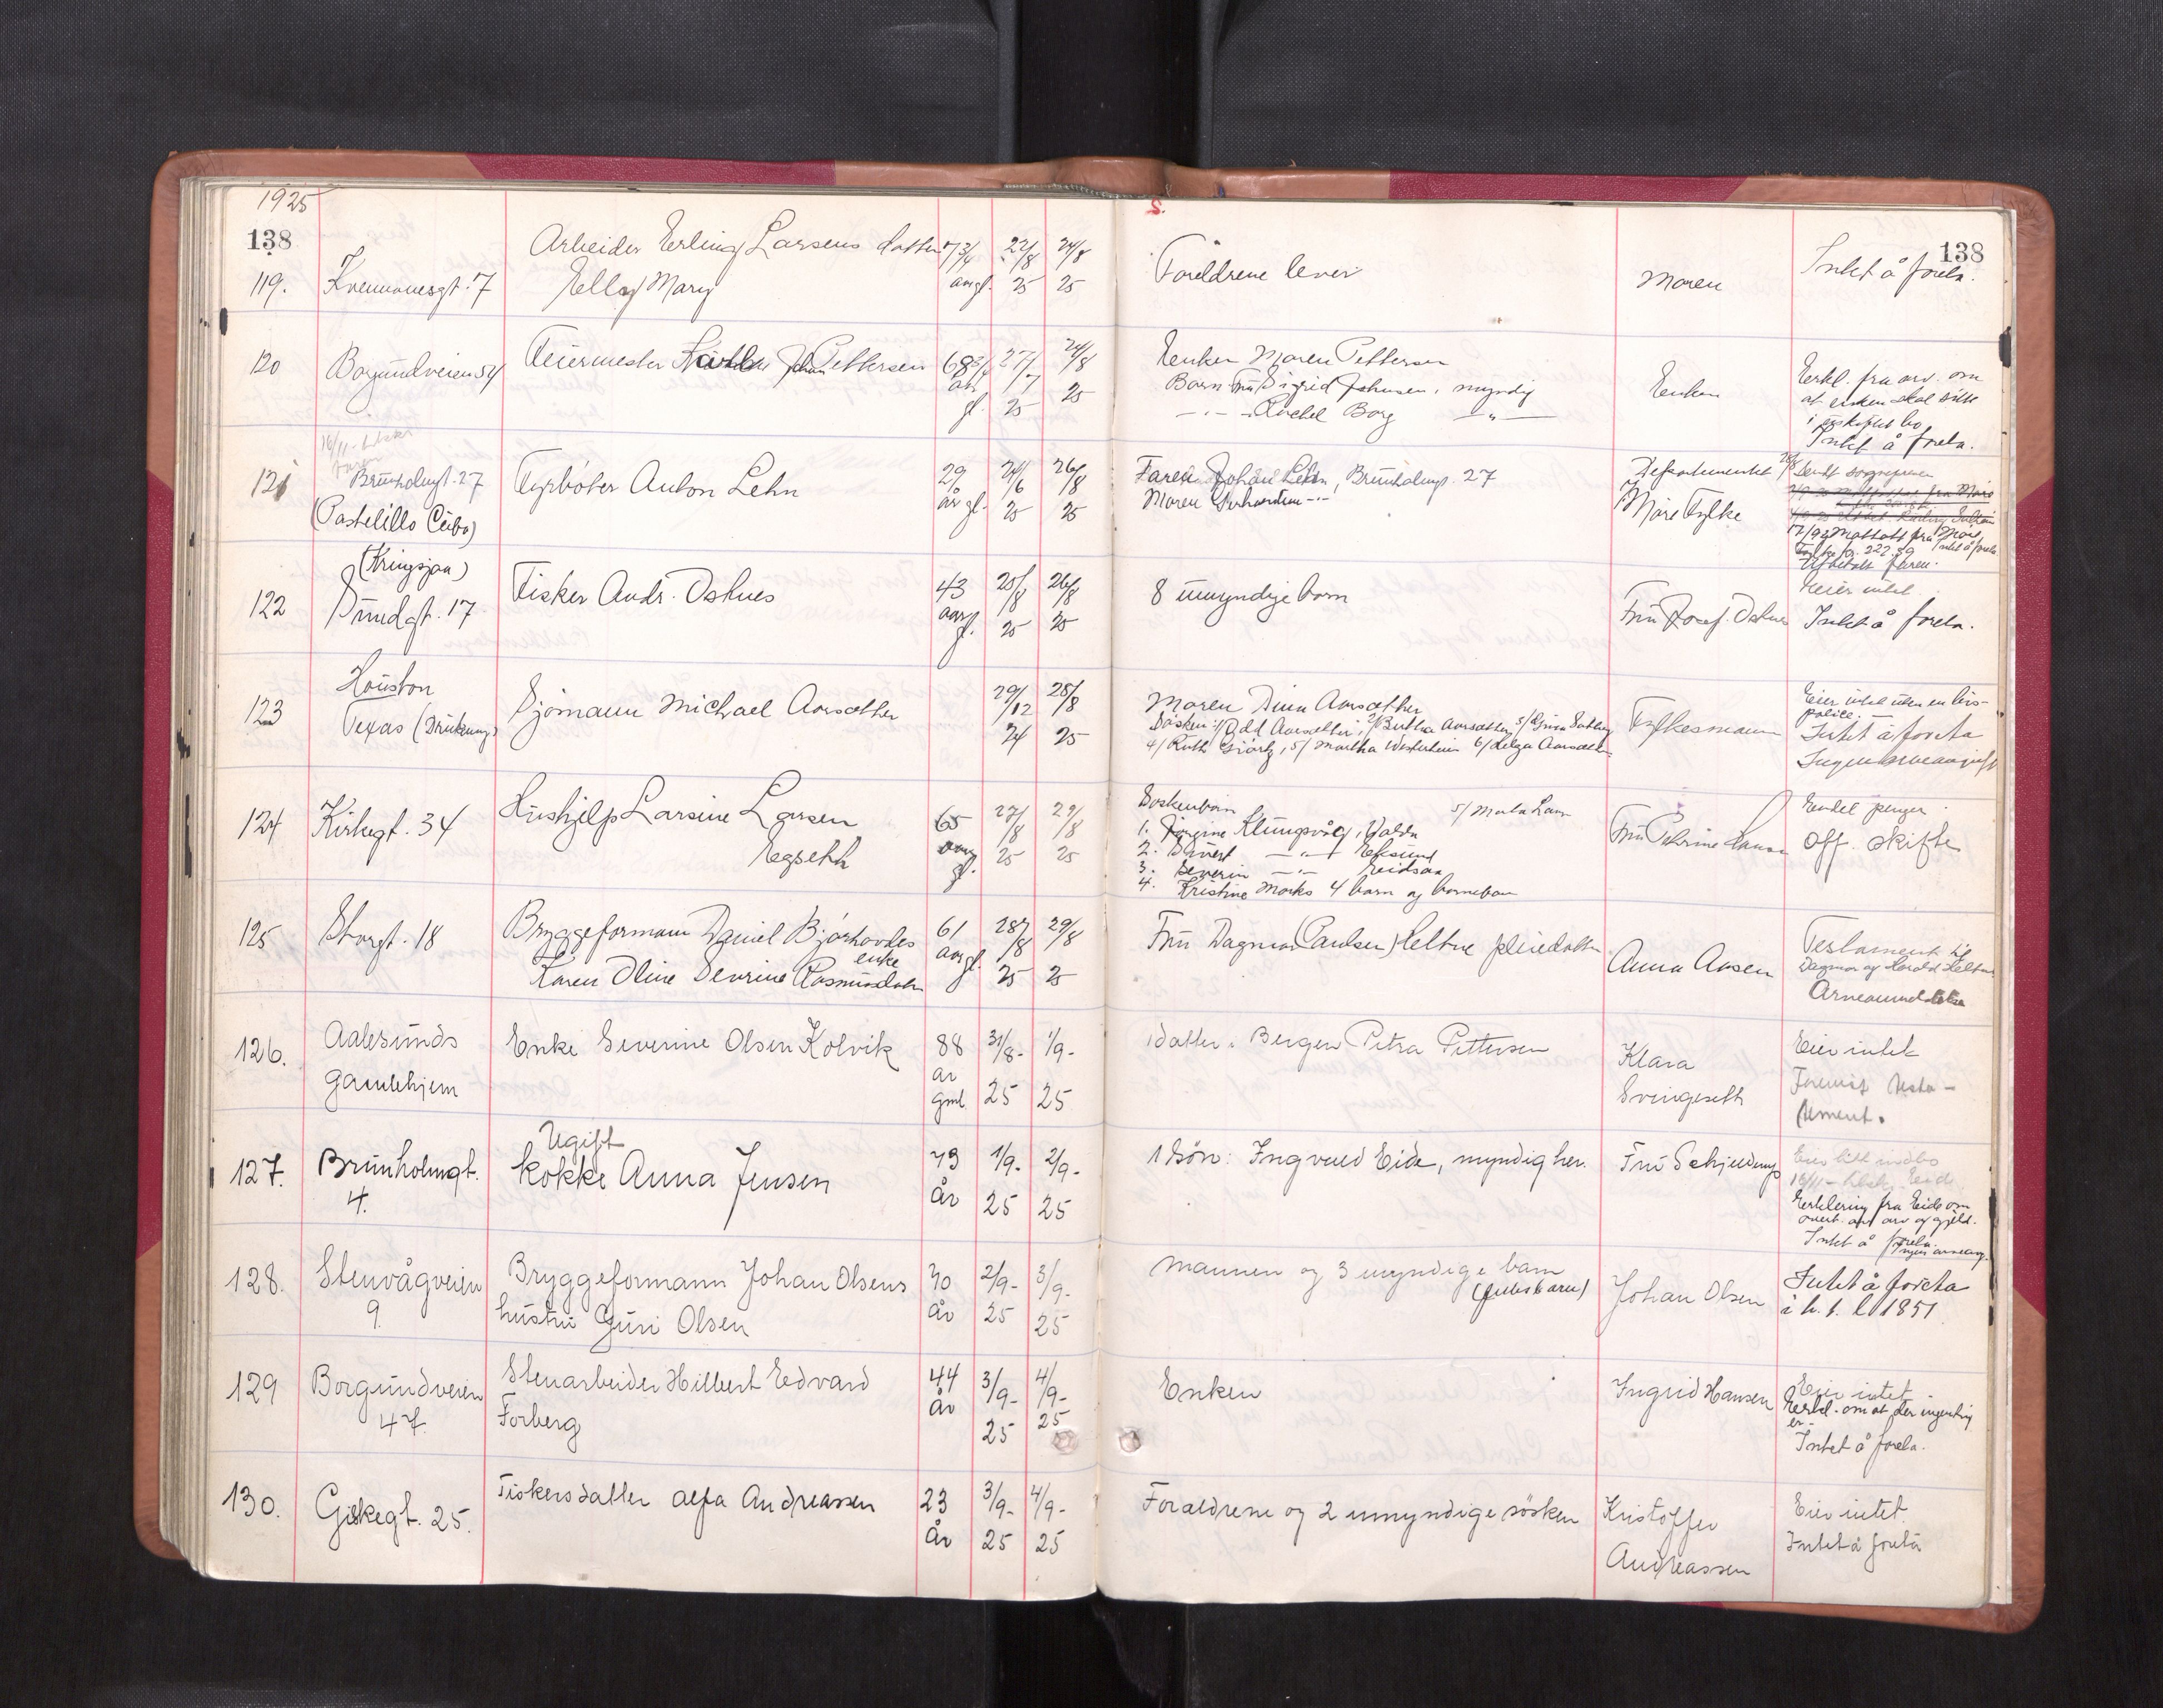 1925
138
138
S.
119. 7
Arbeider Erling Larsens datter
Elly Mary
3/4 aargl. 22/8 25 24/8 25
Foreldrene lever
Moren
Intet å foreta.
120 Borgundveien 54
Feiermester Johan Pettersen
68 3/4 år gl. 27/7 25 24/8 25
Enken Maren Pettersen
Barn: Fru Sigrid Johnsen, myndig
Rachel Borg —"—
Enken
Erkl. fra arv. om
at enken skal sitte
i uskiftet bo
Intet å foreta.
16/11
faren
121 Brunholmgt. 27
(Pastelillo Cuba)
Fyrbøter Anton Lehn
29 år gl. 24/6 25 26/8 25
Faren Johan Lehn, Brunholmgt. 27
Moren
Departementet
Møre Fylke
26/8 Sendt
17/9 25 Mottatt fra Møre
Fylke kr. 222.59 Intet å foreta
Utbetalt faren.
(Kringsjaa)
122 Sundgt. 17
Fisker Andr. Oshues
43 aar gl. 25/8 25 26/8 25
8 umyndige barn
Fru Josef. Oshues
Eeier intet
Intet å foreta.
Houston
123 Texas (Drukning)
Sjömann Michael Aarsæther
29/12 24 28/8 25
Moren Dina Aarsæther
Søsken: 1/ Odd Aarsæther, 2/ Bertha Aarsæther,
4/ Ruth 5/ Martha Westerheim 6/ Helga Aarsæther
Fylkesmann
Eier intet uten en livs-
police.
Intet å foreta
Ingen arveavgift
124 Kirkegt. 34
Hushjelp Larsine Larsen
Egseth
65 aar gl. 27/8 25 29/8 25
Søskenbarn
1. Klungsvåg, Valdø
2. Sivert —"—
3. Severin —"— Eidsaa
4. Kristine Morks 4 barn og barnebarn
Fru Petrine Hansen
Endel penger
Off. skifte
125 Storgt. 18
Bryggeformann Daniel Bjørhovdes
enke
Karen Oline Severine Rasmusdatter
61 aar gl. 28/8 25 29/8 25
Fru Dagmar (Paulsen) Heltne pleiedatter
Anna Aasen
Testament til
Dagmar og Harald Heltne
126. Aalesunds
gamlehjem
Enke Severine Olsen Kolvik
88 år gml. 31/8- 25 1/9- 25
1 datter i Bergen Petra Pettersen
Klara
Svingeseth
Eier intet
Forevist testa-
tement.
127. Brunholmgt.
4.
Ugift
kokke Anna Jensen
79 år 1/9- 25 2/9- 25
1 Sön: Ingvald Eide, myndig her.
Fru Schjelderup
Eier litt indbo
16/11 - Eide
Erklæring fra Eide om
overt. av arv og gjeld.
Intet å foreta.
Ingen arveavg.
128. Stenvågveien
9.
Bryggeformann Johan Olsens
hustru Guri Olsen
70 år 2/9- 25 3/9- 25
Mannen og 3 myndige barn
Johan Olsen
Intet å foreta
i h. t. l 1851
129 Borgundveien
47.
Stenarbeider Hilbert Edvard
Forberg
44 år 3/9- 25 4/9- 25
Enken
Ingrid Hansen
Eier intet.
Erkl. om at der ingenting
er -
Intet å foreta.
130. Giskegt. 25.
Fiskersdatter Alfa Andreassen
23 år 3/9- 25 4/9- 25
Foraeldrene og 2 umyndige søsken
Kristoffer
Andreassen
Eier intet.
Intet å foreta